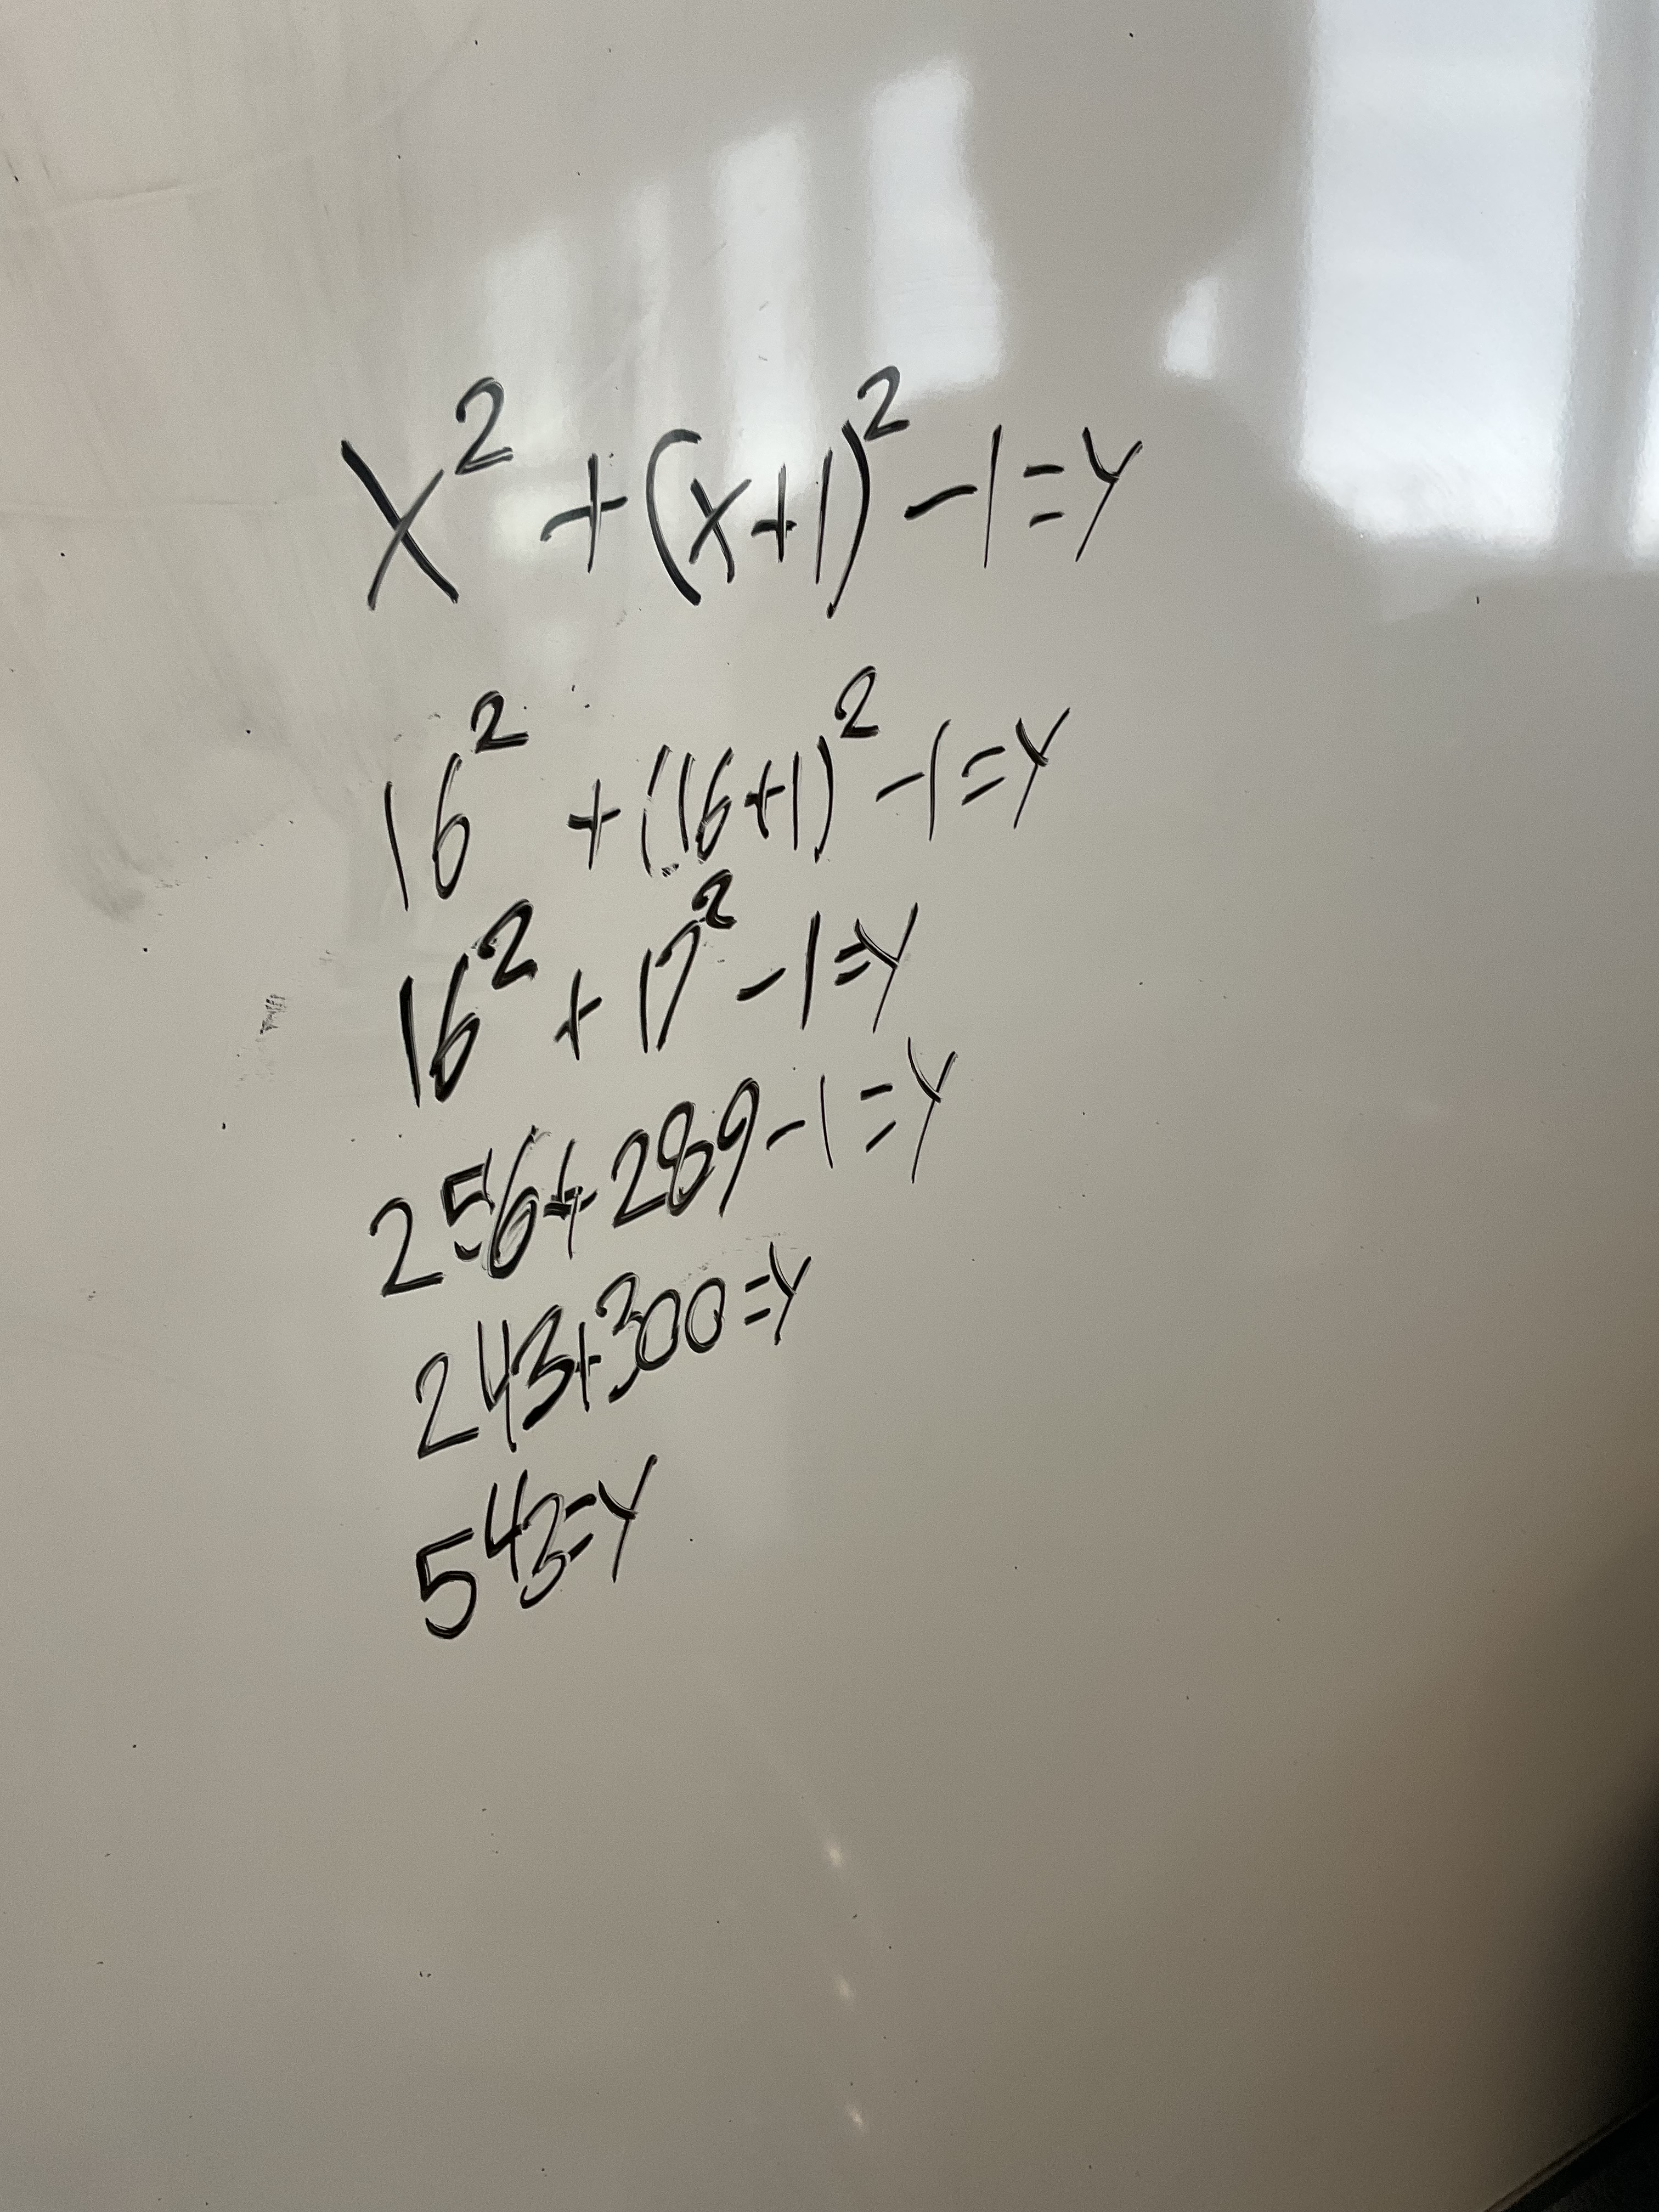 x² + (x+1)² - 1 = y
16² + (16+1)² - 1 = y
16² + 17² - 1 = y
256 + 289 - 1 = y
243 + 300 = y
543 = y